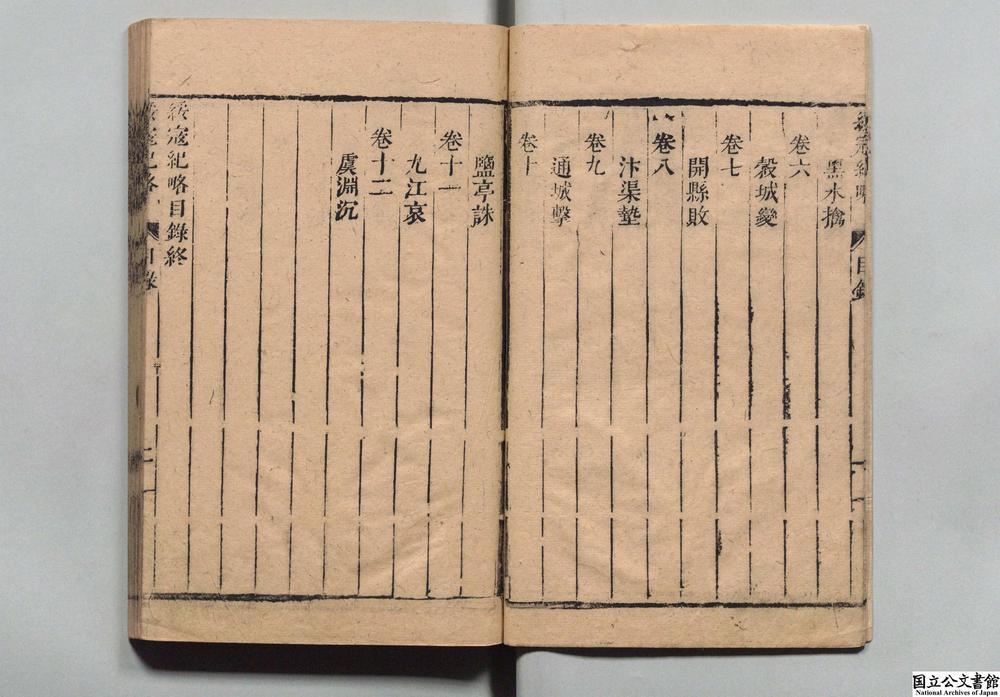 黑水擒
卷六
穀城變
卷七
開縣敗
卷八
汴渠墊
卷九
通城擊
卷十
鹽亭誅
卷十一
九江哀
卷十二
虞淵沉
綏寇紀略目錄終
綏寇紀略
目錄
国立公文書館
National Archives of Japan